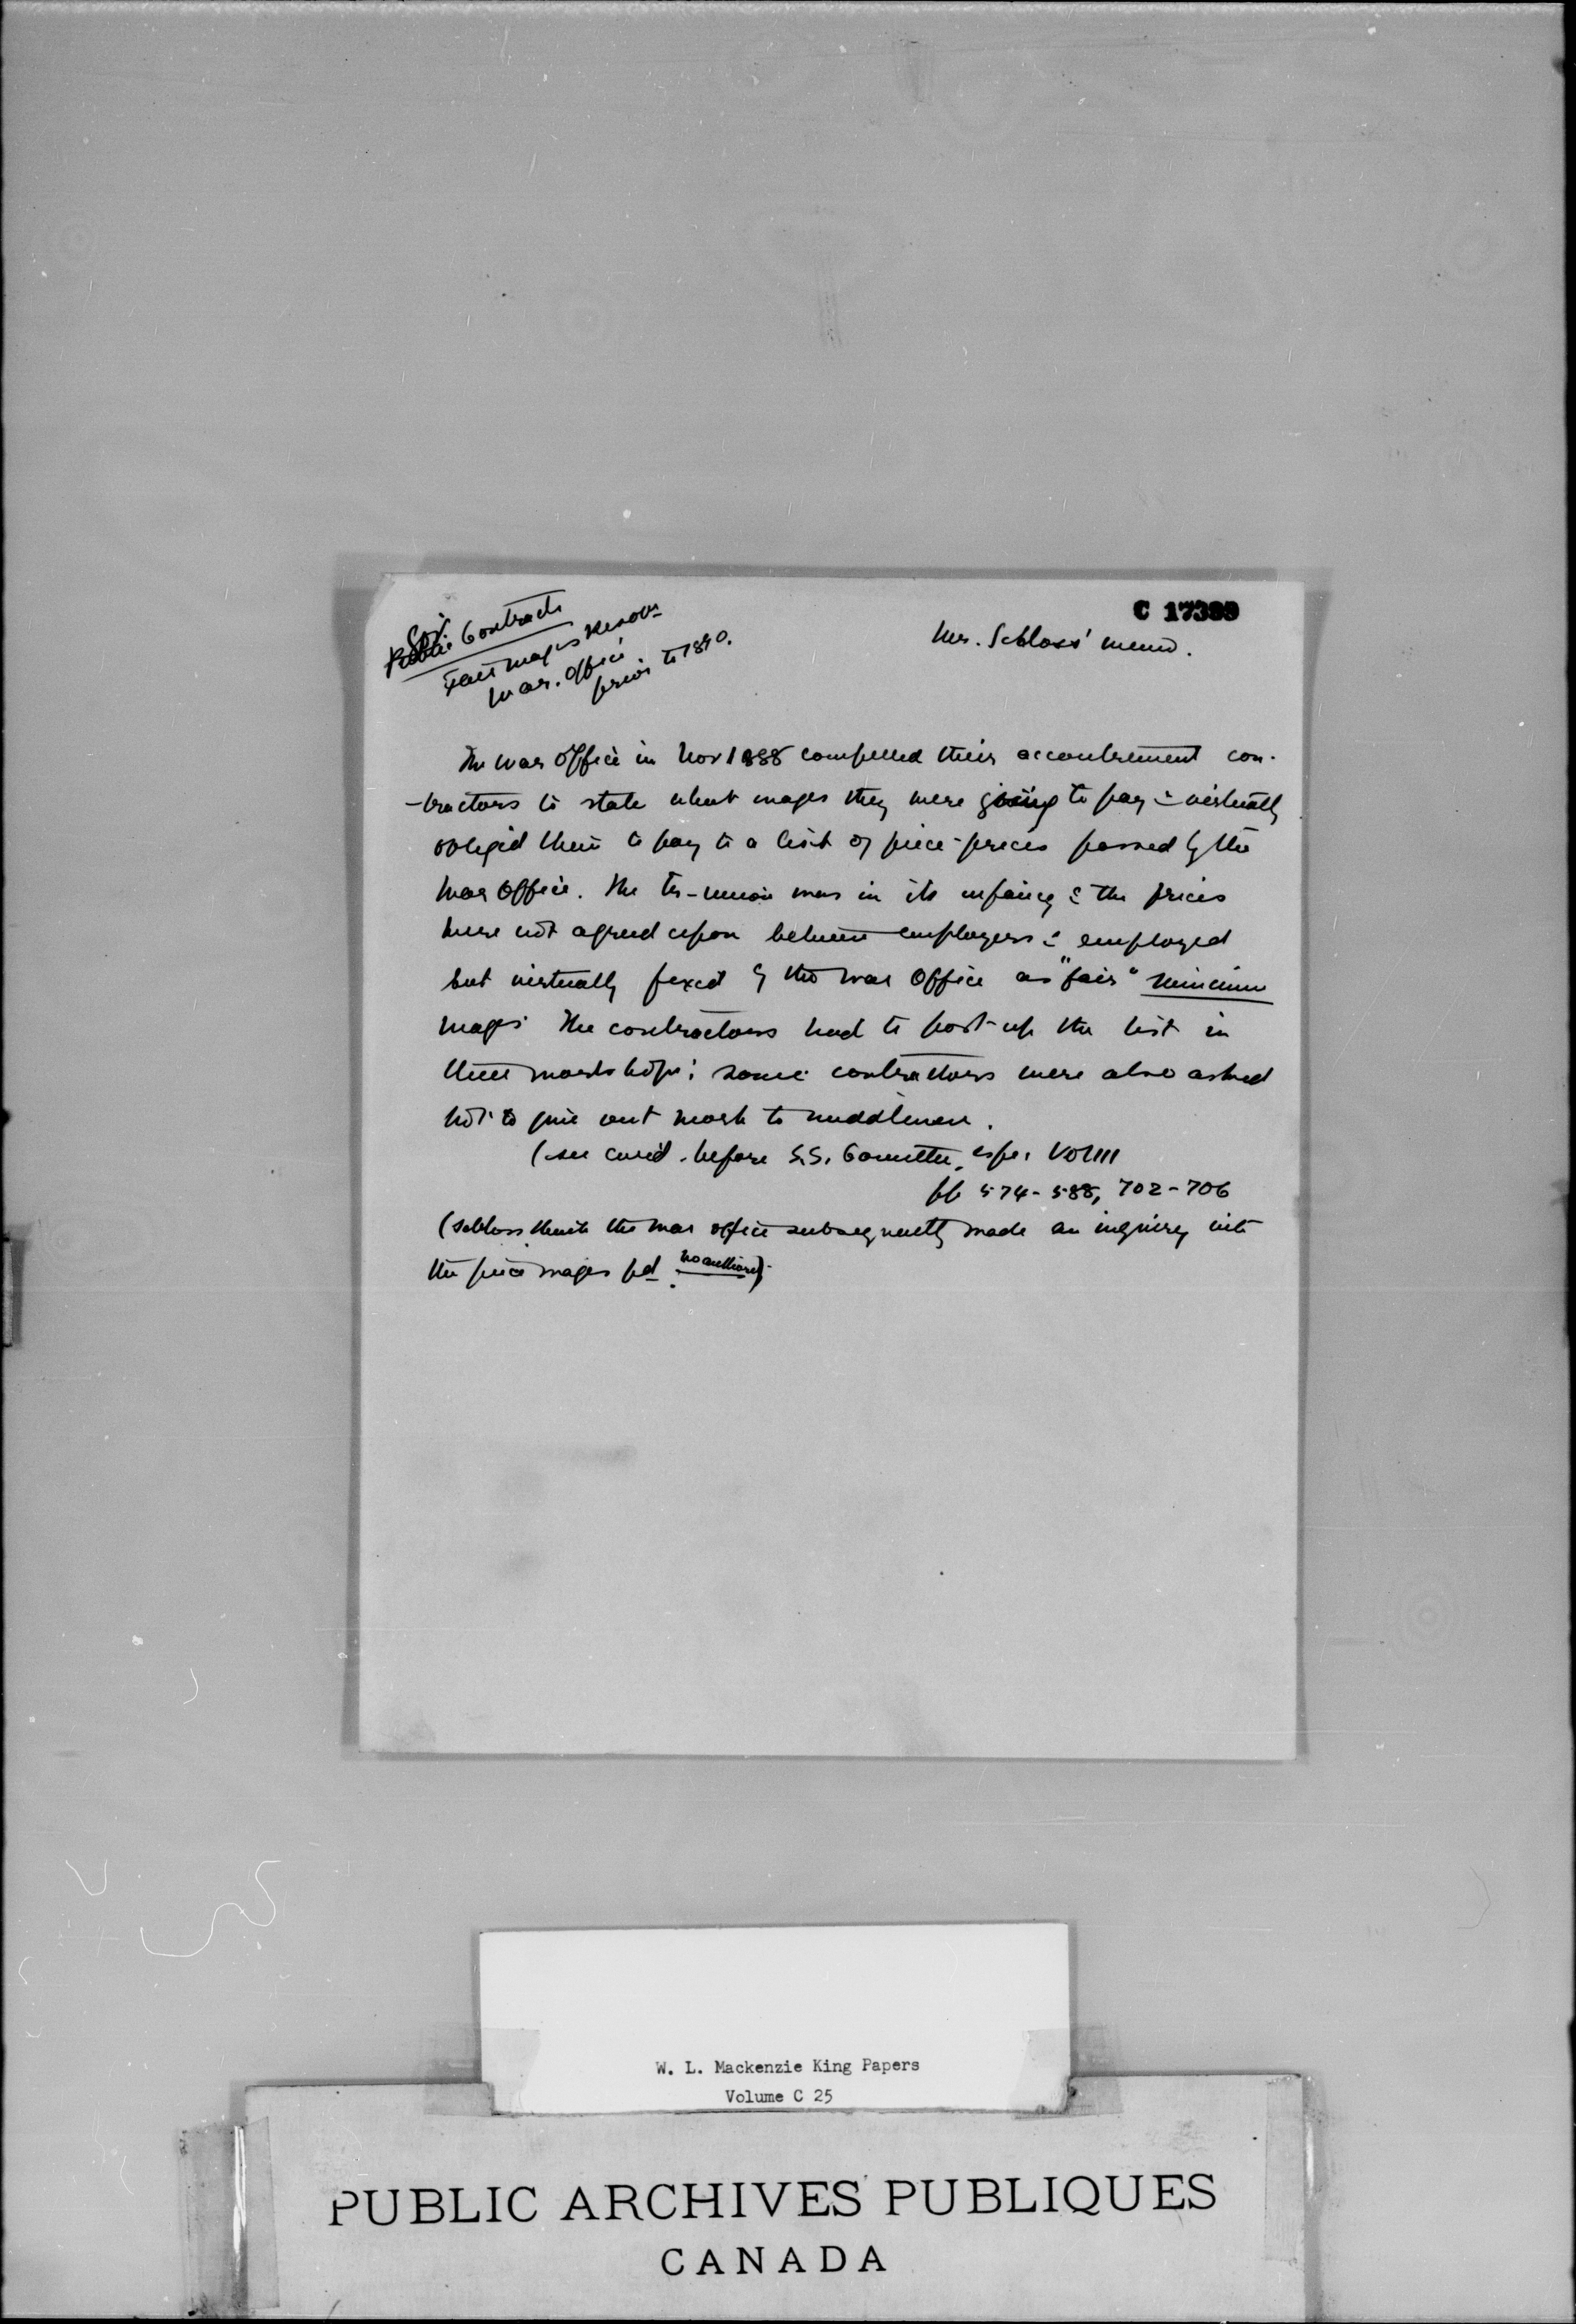 C 17389
Gov. Contracts
Fair Wages Resol'n
War. Office
prior to 1890.
Mr. Schloss' memo.
The War Office in Nov 1888 compelled their accoutrement con-
-tractors to state what wages they were going to pay & virtually
obliged them to pay to a list of piece-prices passed by the
War Office. The tr-union was in its infancy & the prices
were not agreed upon between employers & employed
but virtually fixed by the War Office as "fair" minimum
wages. The contractors had to post-up the list in
their workshops; some contractors were also asked
not to give out work to middlemen.
(see evid. before S.S. Committee, esp. Vol III
pp 574-588, 702-706
(Schloss thinks the War Office subsequently made an inquiry into
the piece wages pd. no authority)
W. L. Mackenzie King Papers
Volume C 25
PUBLIC ARCHIVES PUBLIQUES
CANADA